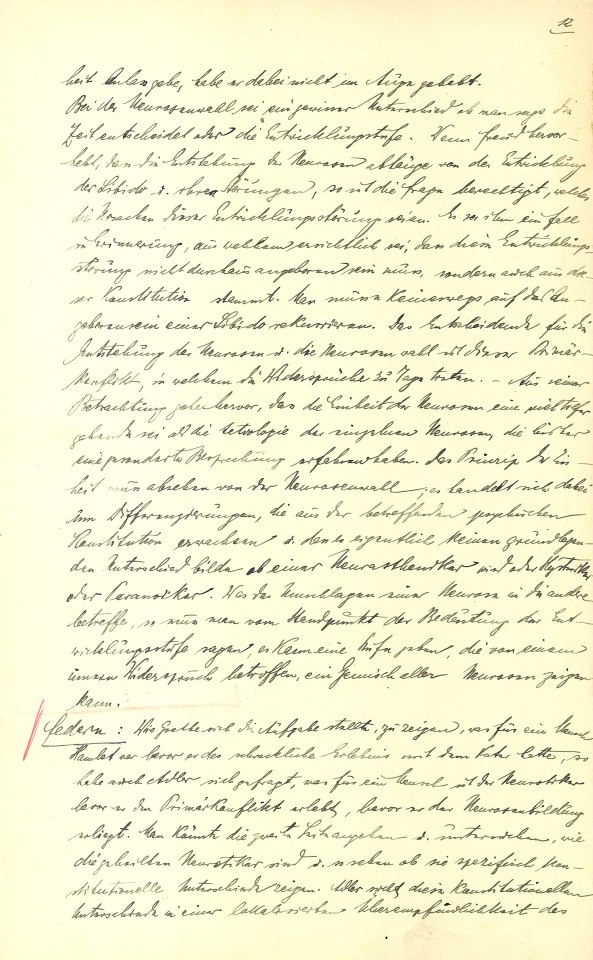 12
heit Anlass gebe, habe er dabei nicht im Auge gehabt.
Bei der Neurosenwahl sei ein gewisser Unterschied ob man sage die
Zeit entscheidet oder die Entwicklungstufe. Wenn Freud hervor-
hebt, dass die Entstehung der Neurosen abhänge von der Entwicklung
der Libido u. ihren Störungen, so ist die Frage berechtigt, welches
die Ursachen dieser Entwicklungsstörung seien. Es sei ihm ein Fall
in Erinnerung, aus welchem ersichtlich sei, dass diese Entwicklungs-
störung nicht durchaus angeboren sein muss, sondern auch aus
ser Konstitution stammt. Man müsse keineswegs auf das An-
geborensein einer Libido rekurrieren. Das Entscheidende für die
Entstehung der Neurosen u. die Neurosenwahl ist dieser Primär-
konflikt, in welchem die Widersprüche zu Tage treten. – Aus seiner
Betrachtung gehe hervor, dass die Einheit der Neurosen eine viel tiefer
gehende sei als die Aetiologie der einzelnen Neurosen, die bisher
eine gesonderte Besprechung erfahren haben. Das Prinzip der Ein-
heit muss absehen von der Neurosenwahl; es handelt sich dabei
um Differenzierungen, die aus der betreffenden psychischen
Konstitution erwachsen u. den es eigentlich keinen grundlegen-
den Unterschied bilde ob einer Neurastheniker wird oder Hysteriker
oder Paranoiker. Was das Umschlagen einer Neurose in die andere
betreffe, so muss man vom Standpunkt der Bedeutung der Ent-
wicklungsstufe sagen, es kann eine Stufe geben, die von einem
innern Widerspruch betroffen, ein Gemisch aller Neurosen zeigen
kann.
Federn: Wie Goethe sich die Aufgabe stellte, zu zeigen, was für ein Mensch
Hamlet war bevor er das schreckliche Erlebnis mit dem Vater hatte, so
habe auch Adler sich gefragt, was für ein Mensch ist der Neurotiker
bevor er den Primärkonflikt erlebt, bevor er der Neurosenbildung
erliegt. Man könnte die zweite Seite angehen u. untersuchen, wie
die geheilten Neurotiker sind u. sehen ob sie spezifisch kon-
stitutionelle Unterschiede zeigen. Adler sieht diese konstitutionellen
Unterschiede in einer lokalisierten Überempfindlichkeit des